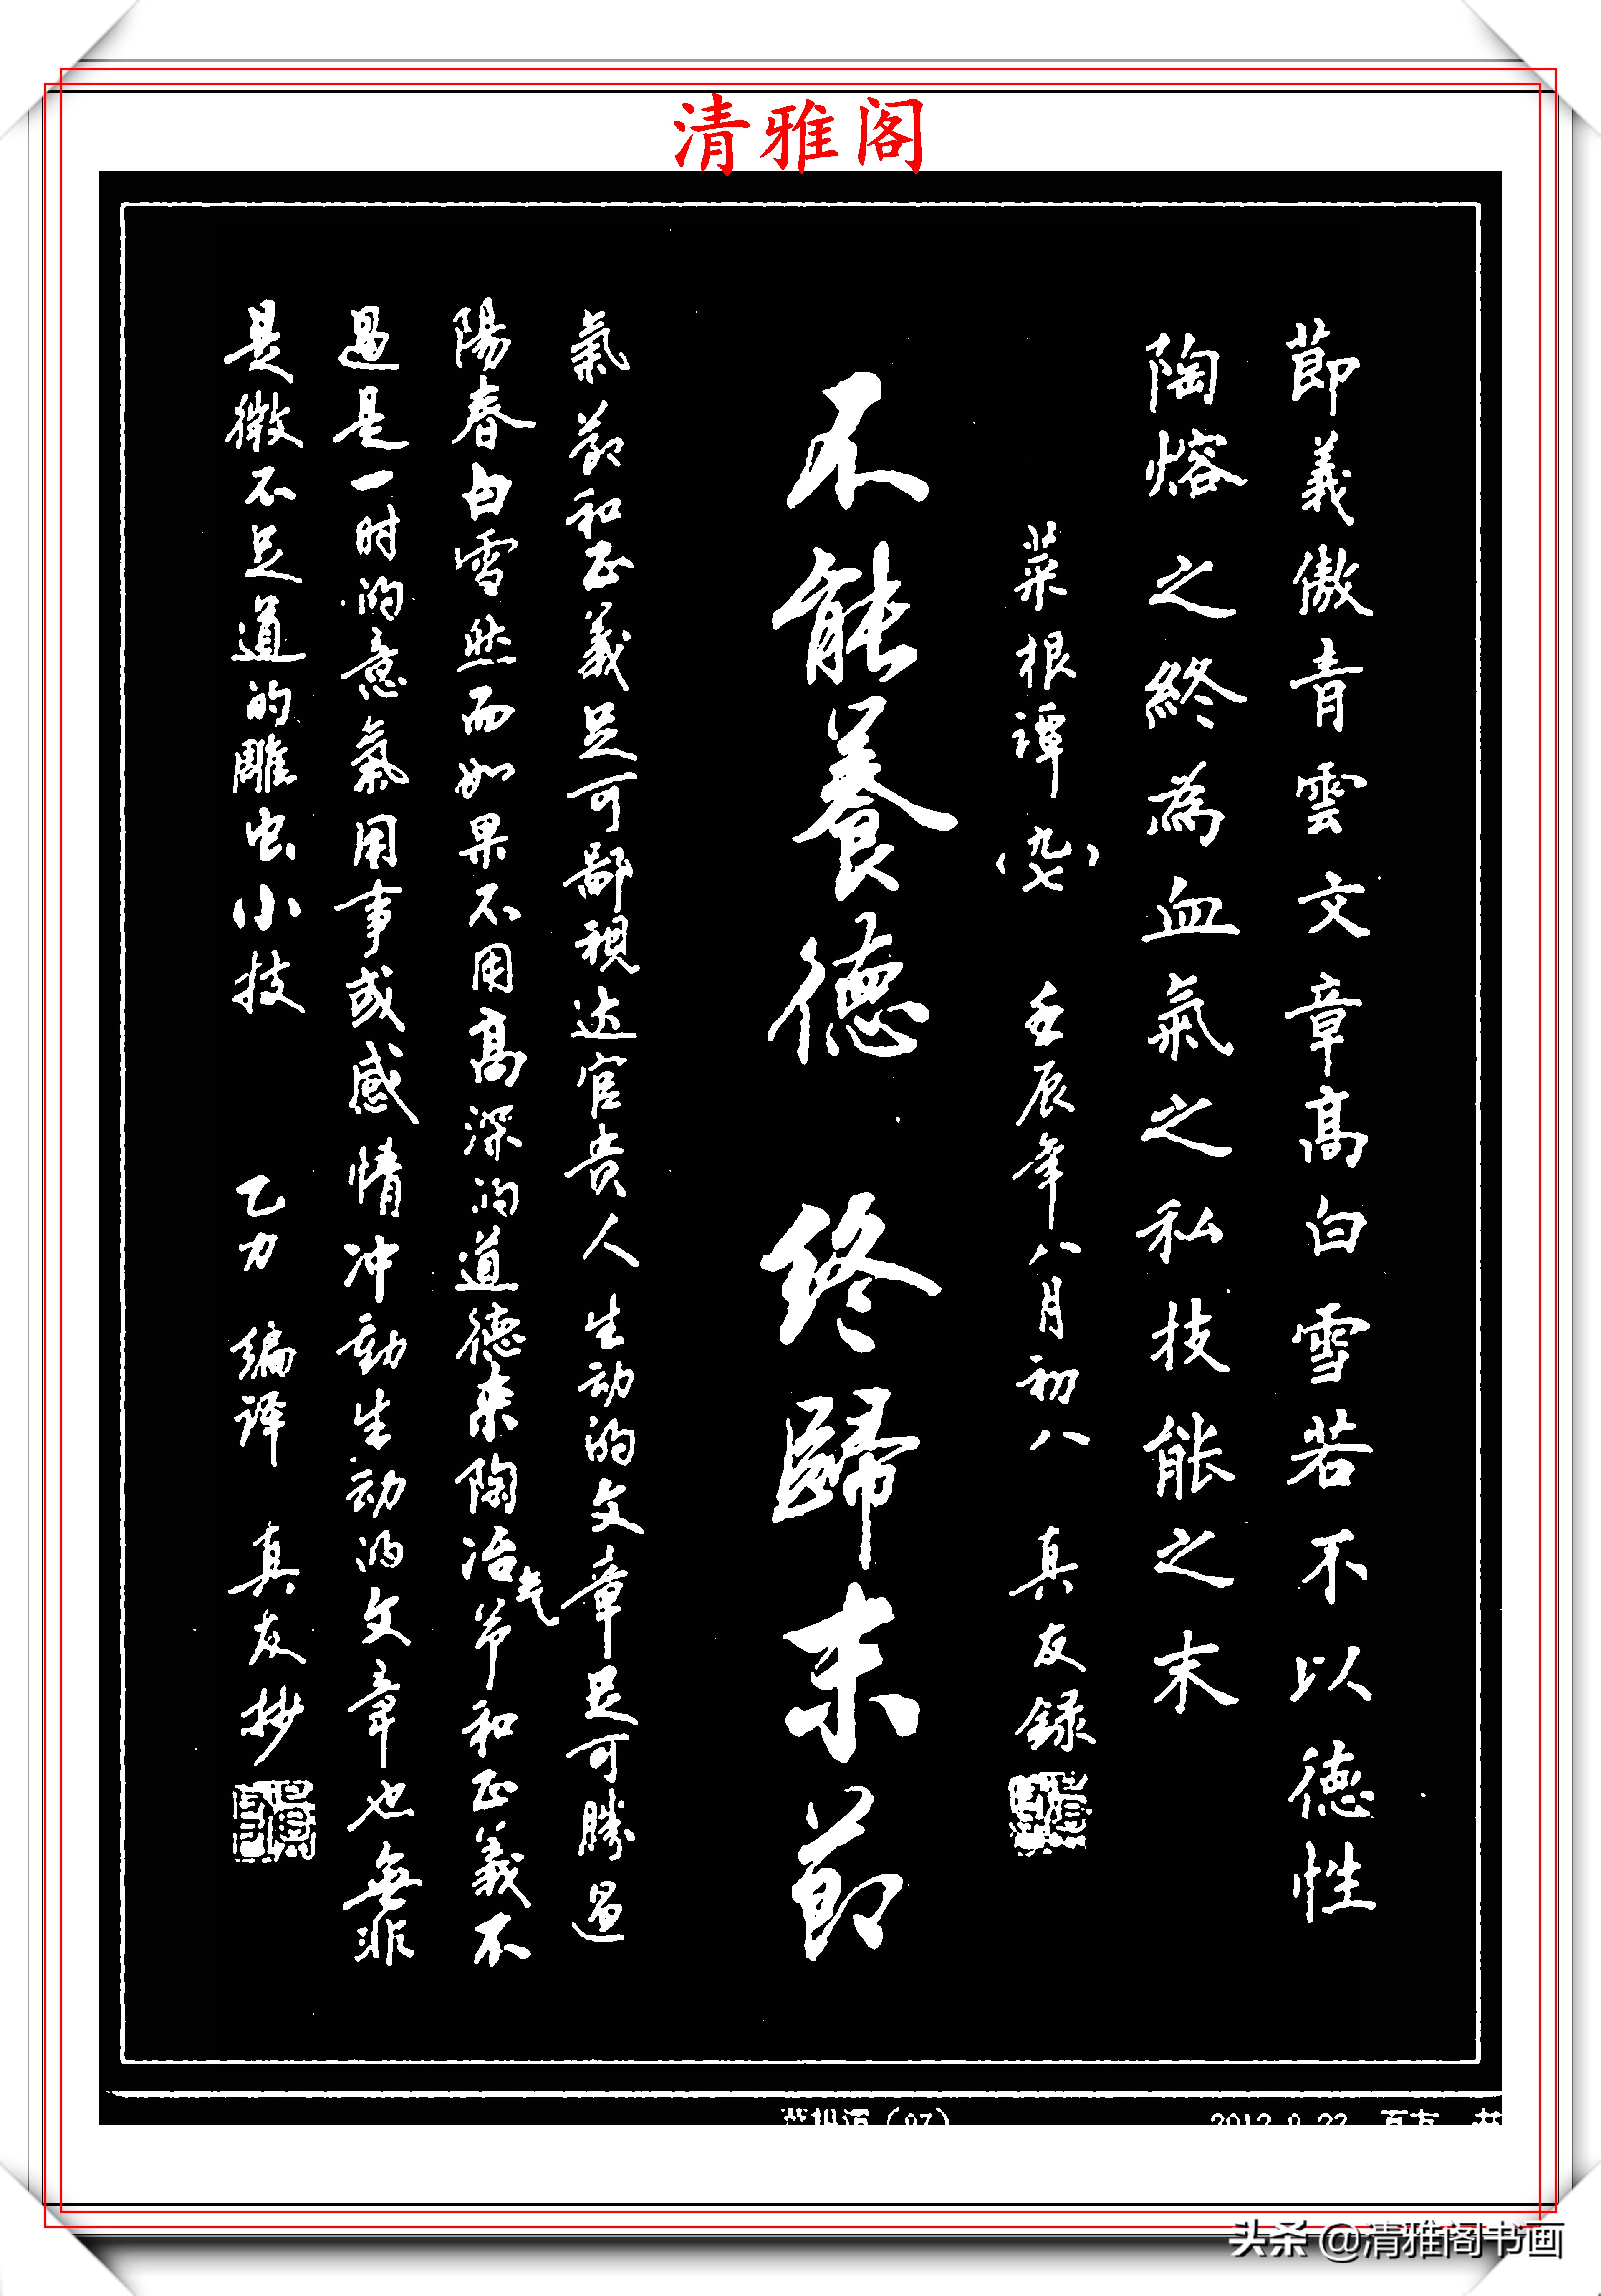 清雅阁
節義傲青雲文章高白雪若不以德性
陶熔之終為血氣之私技能之末
菜根譚（九七） 壬辰年八月初八 真友録
不能養德 终歸末節
氣節和正義足可鄙視达官贵人生动的文章足可勝過
陽春白雪然而如果不用高深的道德来陶冶志节和正義不
過是一时的意氣用事或感情冲動生动的文章也無非
是微不足道的雕虫小技 乙力 编译 真友抄
头条 @清雅阁书画